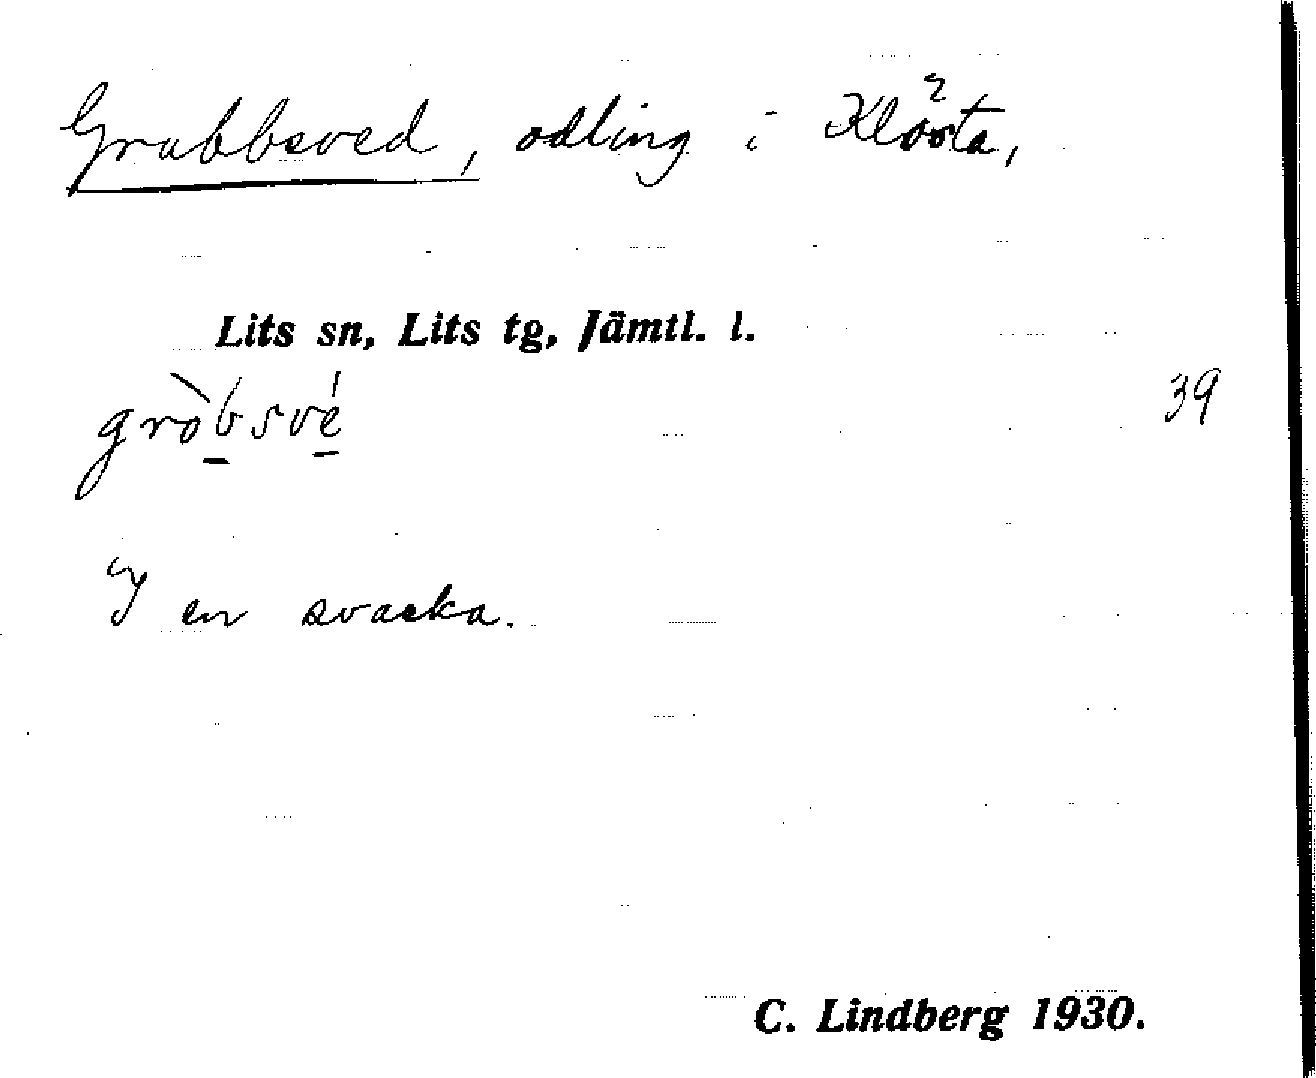 Grubbsved, odling i Klösta,
Lits sn, Lits tg, Jämtl. l.
39
I en svacka.
C. Lindberg 1930.